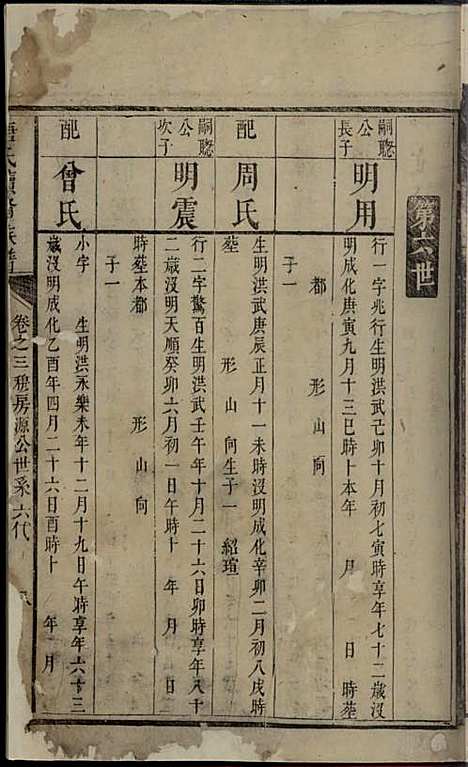 第六世
嗣聦公長子
明用
行一字兆行生明洪武己卯十月初七寅時享年七十二歲沒
明成化庚寅九月十三巳時卜本年　月　日　時塟
都　形　山　向
子一
配
周氏
生明洪武庚辰正月十一未時沒明成化辛卯二月初八戌時
塟　形　山　向生子一　紹瑄
嗣聦公次子
明震
行二字驚百生明洪武壬午年十月二十六日卯時享年八十
二歲沒明天順癸卯六月初一日午時卜　年　月　日
時塟本都　形　山　向
子一
配
曾氏
小字　生明洪永樂未年十二月十九日午時享年六十三
歲沒明成化乙酉年四月二十六日酉時卜　年　月
氏續脩族譜
卷之三　稅房源公世系　六代